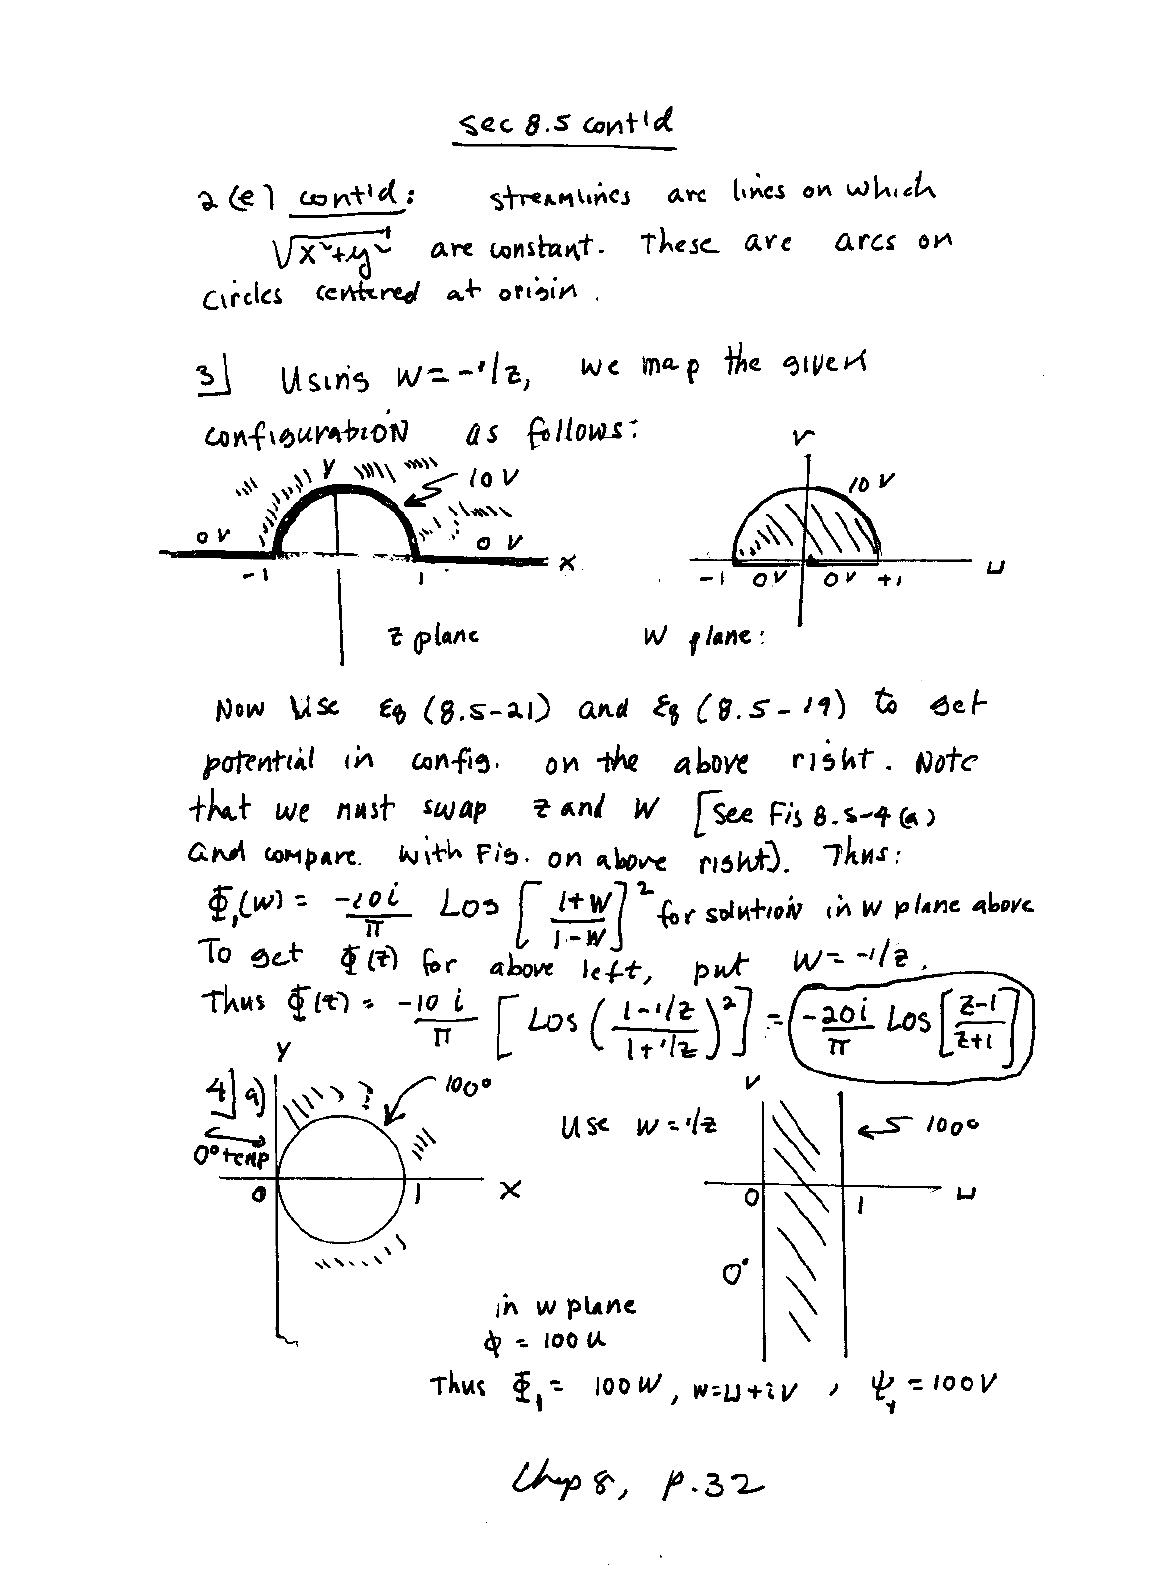 Sec 8.5 cont'd
2(e) cont'd: streamlines are lines on which
√x²+y² are constant. These are arcs on
circles centered at origin.
3] Using W=-1/z, we map the given
configuration as follows:
y
10 V
0 V
0 V
-1
1
x
z plane
v
10 V
-1 0V 0V +1
u
W plane:
Now use Eq (8.5-21) and Eq (8.5-19) to get
potential in config. on the above right. Note
that we must swap z and W [See Fig 8.5-4(a)
and compare. with Fig. on above right]. Thus:
Φ₁(w) = -10i/π Log [1+W/1-W]² for solution in w plane above
To get Φ(z) for above left, put W=-1/z.
Thus Φ(z) = -10 i/π [Log (1-1/z / 1+1/z)²] = -20i/π Log [z-1/z+1]
4] a)
y
100°
0° temp
0
1
x
Use W=1/z
v
100°
0
1
u
0°
in w plane
ϕ = 100 u
Thus Φ₁ = 100W, w=u+iv, ψ₁ = 100V
Chap 8, p.32